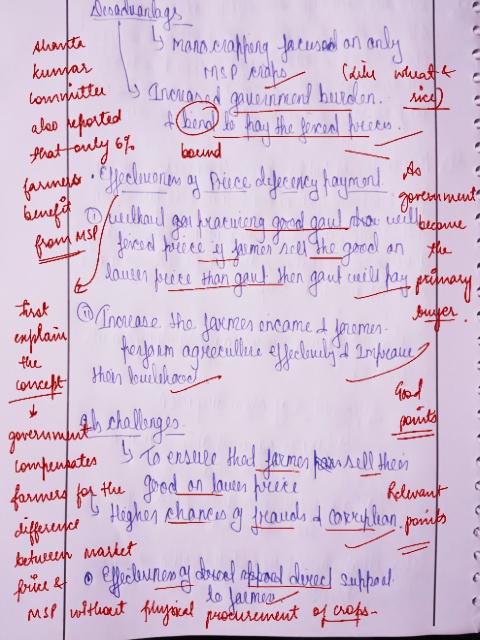 Disadvantages
↳ Monocropping focused on only
MSP crops
(like wheat &
rice)
↳ Increased government burden.
& bond to pay the ficed prices.
bound
Shanta
kumar
committee
also reported
that only 6%
farmers
benefit
from MSP
• Effectiveness of Price deficency payment
① without gov procuring good govt now will
ficed price if farmer sell the good on
lower price than govt then govt will pay
As
government
become
the
primary
buyer.
② Increase the farmer income & farmers
perform agriculture effectively & Improve
their livelihood
First
explain
the
concept
↓
government
compensates
farmers for the
difference
between market
price &
MSP without physical procurement of crops.
Good
points
challenges.
↳ To ensure that farmer sell their
good on lower price
↳ Higher chances of frauds & corruption.
Relevant
points
• Effectiveness of direct support
to farmer